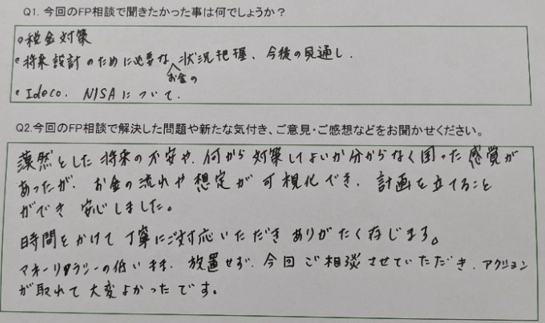 Q1. 今回のFP相談で聞きたかった事は何でしょうか?
○税金対策
• 将来設計のために必要な、状況把握、今後の見通し.
お金の
• Ideco. NISAについて.
Q2.今回のFP相談で解決した問題や新たな気付き、ご意見・ご感想などをお聞かせください。
漠然とした将来の不安や、何から対策してよいか分からなく困った感覚が
あったが、お金の流れや想定が可視化でき、計画を立てること
ができ安心しました。
時間をかけて丁寧にご対応いただきありがたく存じます。
マネーリテラシーの低いまま、放置せず、今回ご相談させていただき、アクション
が取れて大変よかったです。